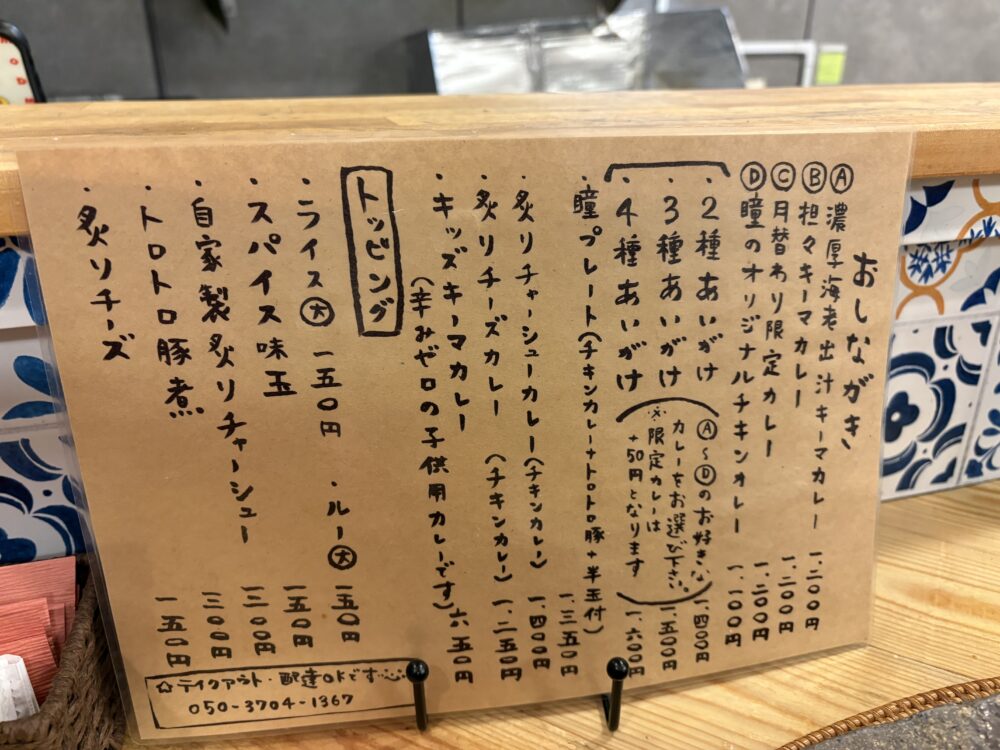 おしながき
Ⓐ濃厚海老出汁キーマカレー 一.二〇〇円
Ⓑ担々キーマカレー 一.二〇〇円
Ⓒ月替わり限定カレー 一.二〇〇円
Ⓓ瞳のオリジナルチキンカレー 一.一〇〇円
・2種あいがけ 一.四〇〇円
・3種あいがけ 一.五〇〇円
・4種あいがけ 一.六〇〇円
(Ⓐ〜Ⓓのお好きな
カレーをお選び下さい。
※限定カレーは
+50円となります)
・瞳プレート(チキンカレー+トロトロ豚+半玉付) 一.三五〇円
・炙りチャーシューカレー(チキンカレー) 一.四〇〇円
・炙りチーズカレー (チキンカレー) 一.二五〇円
・キッズキーマカレー 六五〇円
(辛みゼロの子供用カレーです)
トッピング
・ライス㊅ 一五〇円 ・ルー㊅ 一五〇円
・スパイス味玉 一五〇円
・自家製炙りチャーシュー 三〇〇円
・トロトロ豚煮 三〇〇円
・炙りチーズ 一五〇円
☆テイクアウト・配達OKです
050-3704-1367